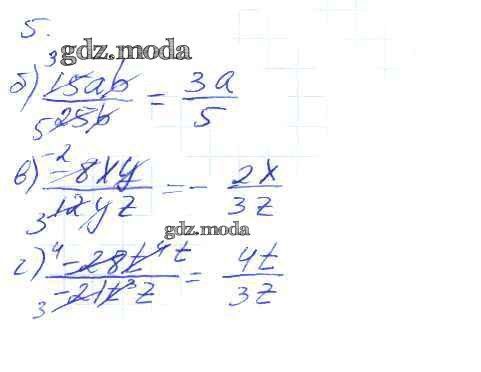 5.
gdz.moda
б) 15ab/25b = 3a/5
3 5
в) -8xy/12yz = - 2x/3z
-2 3
gdz.moda
г) -28t⁴/-21t³z = 4t/3z
4 t 3